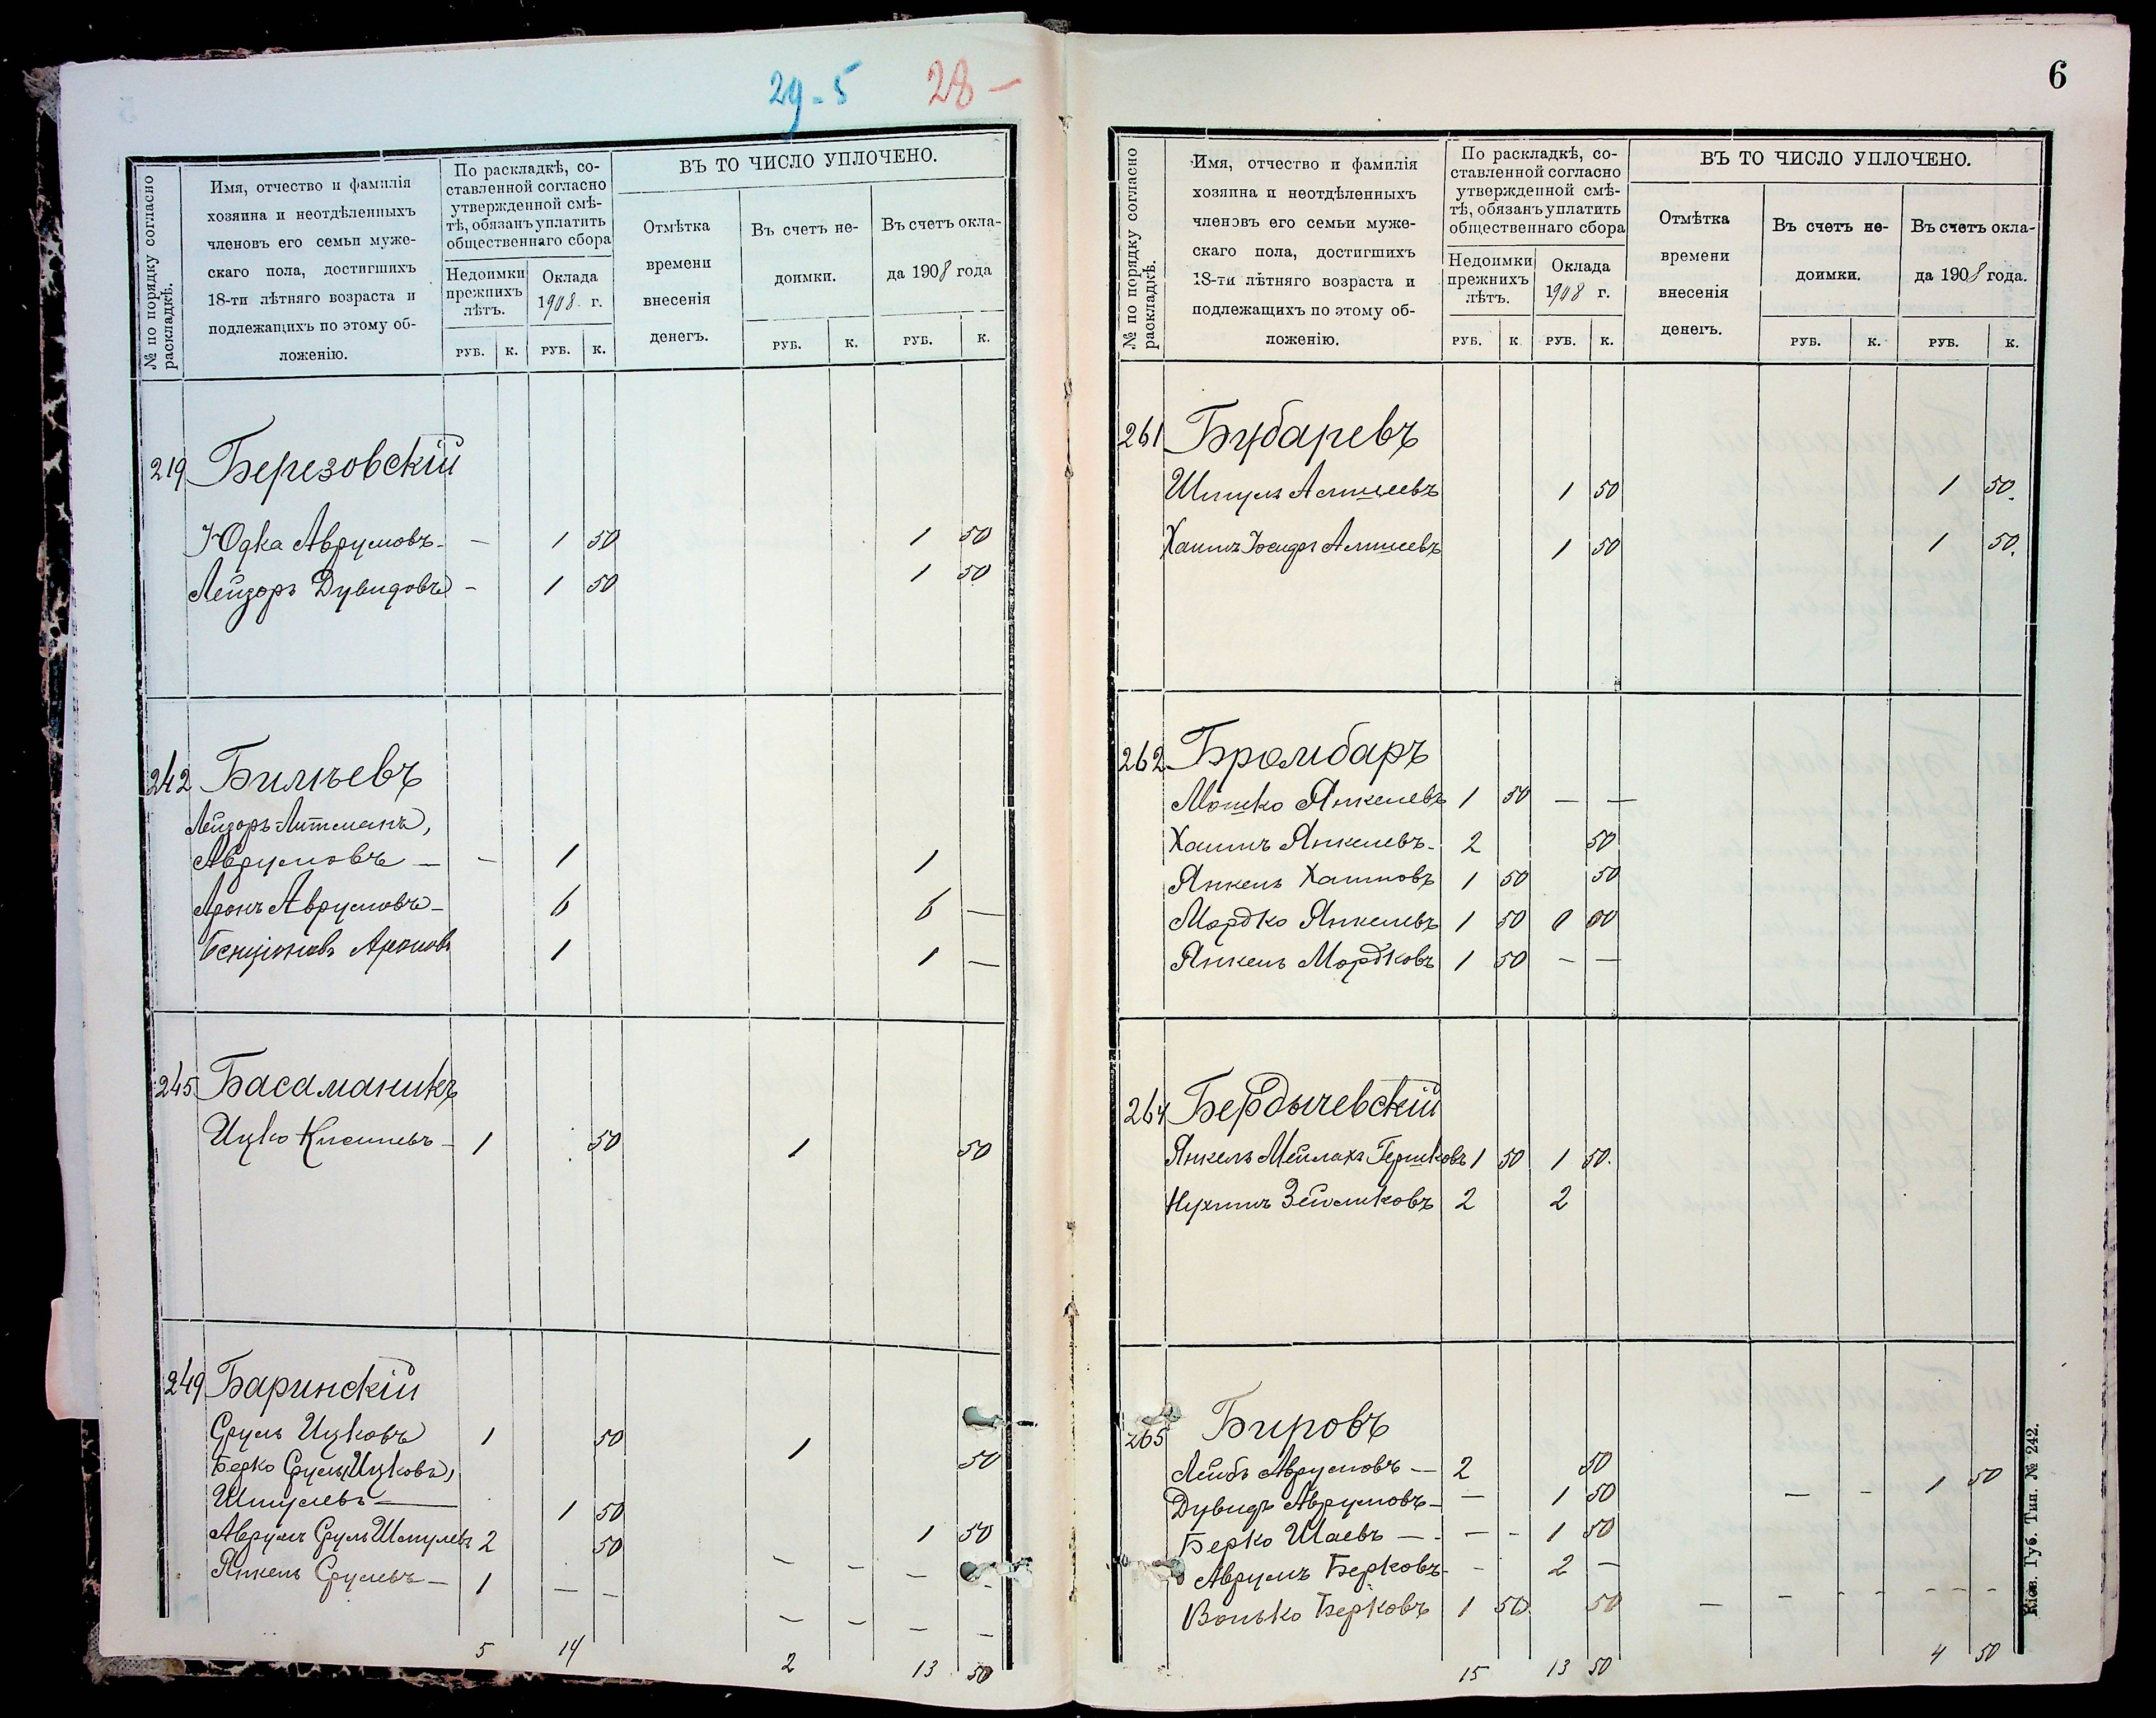 29-5 28 —
№ по порядку согласно раскладкѣ.
Имя, отчество и фамилія
хозяина и неотдѣленныхъ
членовъ его семьи муже-
скаго пола, достигшихъ
18-ти лѣтняго возраста и
подлежащихъ по этому об-
ложенію.
По раскладкѣ, со-
ставленной согласно
утвержденной смѣ-
тѣ, обязанъ уплатить
общественнаго сбора
Недоимки
прежнихъ
лѣтъ.
Оклада
1908 г.
ВЪ ТО ЧИСЛО УПЛОЧЕНО.
Отмѣтка
времени
внесенія
денегъ.
Въ счетъ не-
доимки.
Въ счетъ окла-
да 1908 года
РУБ. К. РУБ. К. РУБ. К. РУБ. К.
219 Березовскій
Юдка Аврумовъ - — 1 50 1 50
Лейзоръ Дувидовъ - 1 50 1 50
242 Билѣевъ
Лейзоръ-Литманъ,
Аврумовъ — - 1 1
Аронъ Аврумовъ - 6 6 —
Бенціонъ Ароновъ 1 1 —
245 Басаманикъ
Ицко - 1 50 1 50
249 Баринскій
Сруль Ицковъ 1 50 1 50
Берко Сруль(Ицковъ)
Шмулевъ — 1 50 1 50
Аврумъ Сруль Шмулевъ 2 50 — — — -
Янкель Срулевъ — 1 — — — — — —
5 14 2 13 50
6
№ по порядку согласно раскладкѣ.
Имя, отчество и фамилія
хозяина и неотдѣленныхъ
членовъ его семьи муже-
скаго пола, достигшихъ
18-ти лѣтняго возраста и
подлежащихъ по этому об-
ложенію.
По раскладкѣ, со-
ставленной согласно
утвержденной смѣ-
тѣ, обязанъ уплатить
общественнаго сбора
Недоимки
прежнихъ
лѣтъ.
Оклада
1908 г.
ВЪ ТО ЧИСЛО УПЛОЧЕНО.
Отмѣтка
времени
внесенія
денегъ.
Въ счетъ не-
доимки.
Въ счетъ окла-
да 1908 года.
РУБ. К РУБ. К. РУБ. К. РУБ. К.
261 Бубаревъ
Шмуль 1 50 1 50.
Хаимъ Іосифъ 1 50 1 50.
262 Бромбаръ
Мошко Янкелевъ 1 50 — —
Хаимъ Янкелевъ - 2 50
Янкель Хаимовъ 1 50 50
Мордко Янкелевъ 1 50
Янкель Мордковъ 1 50 — —
264 Бердычевскій
Янкель Мейлахъ Гершковъ 1 50 1 50.
Нухимъ Зейликовъ 2 2
265 Бировъ
Лейбъ Аврумовъ — 2 50
Дувидъ Аврумовъ - — 1 50 — - 1 50
Берко Шаевъ — - — - 1 50
Аврумъ Берковъ - - 2 —
Волько Берковъ 1 50 50 — - - - - - -
15 13 50 4 50
Кіев. Губ. Тип. № 242.